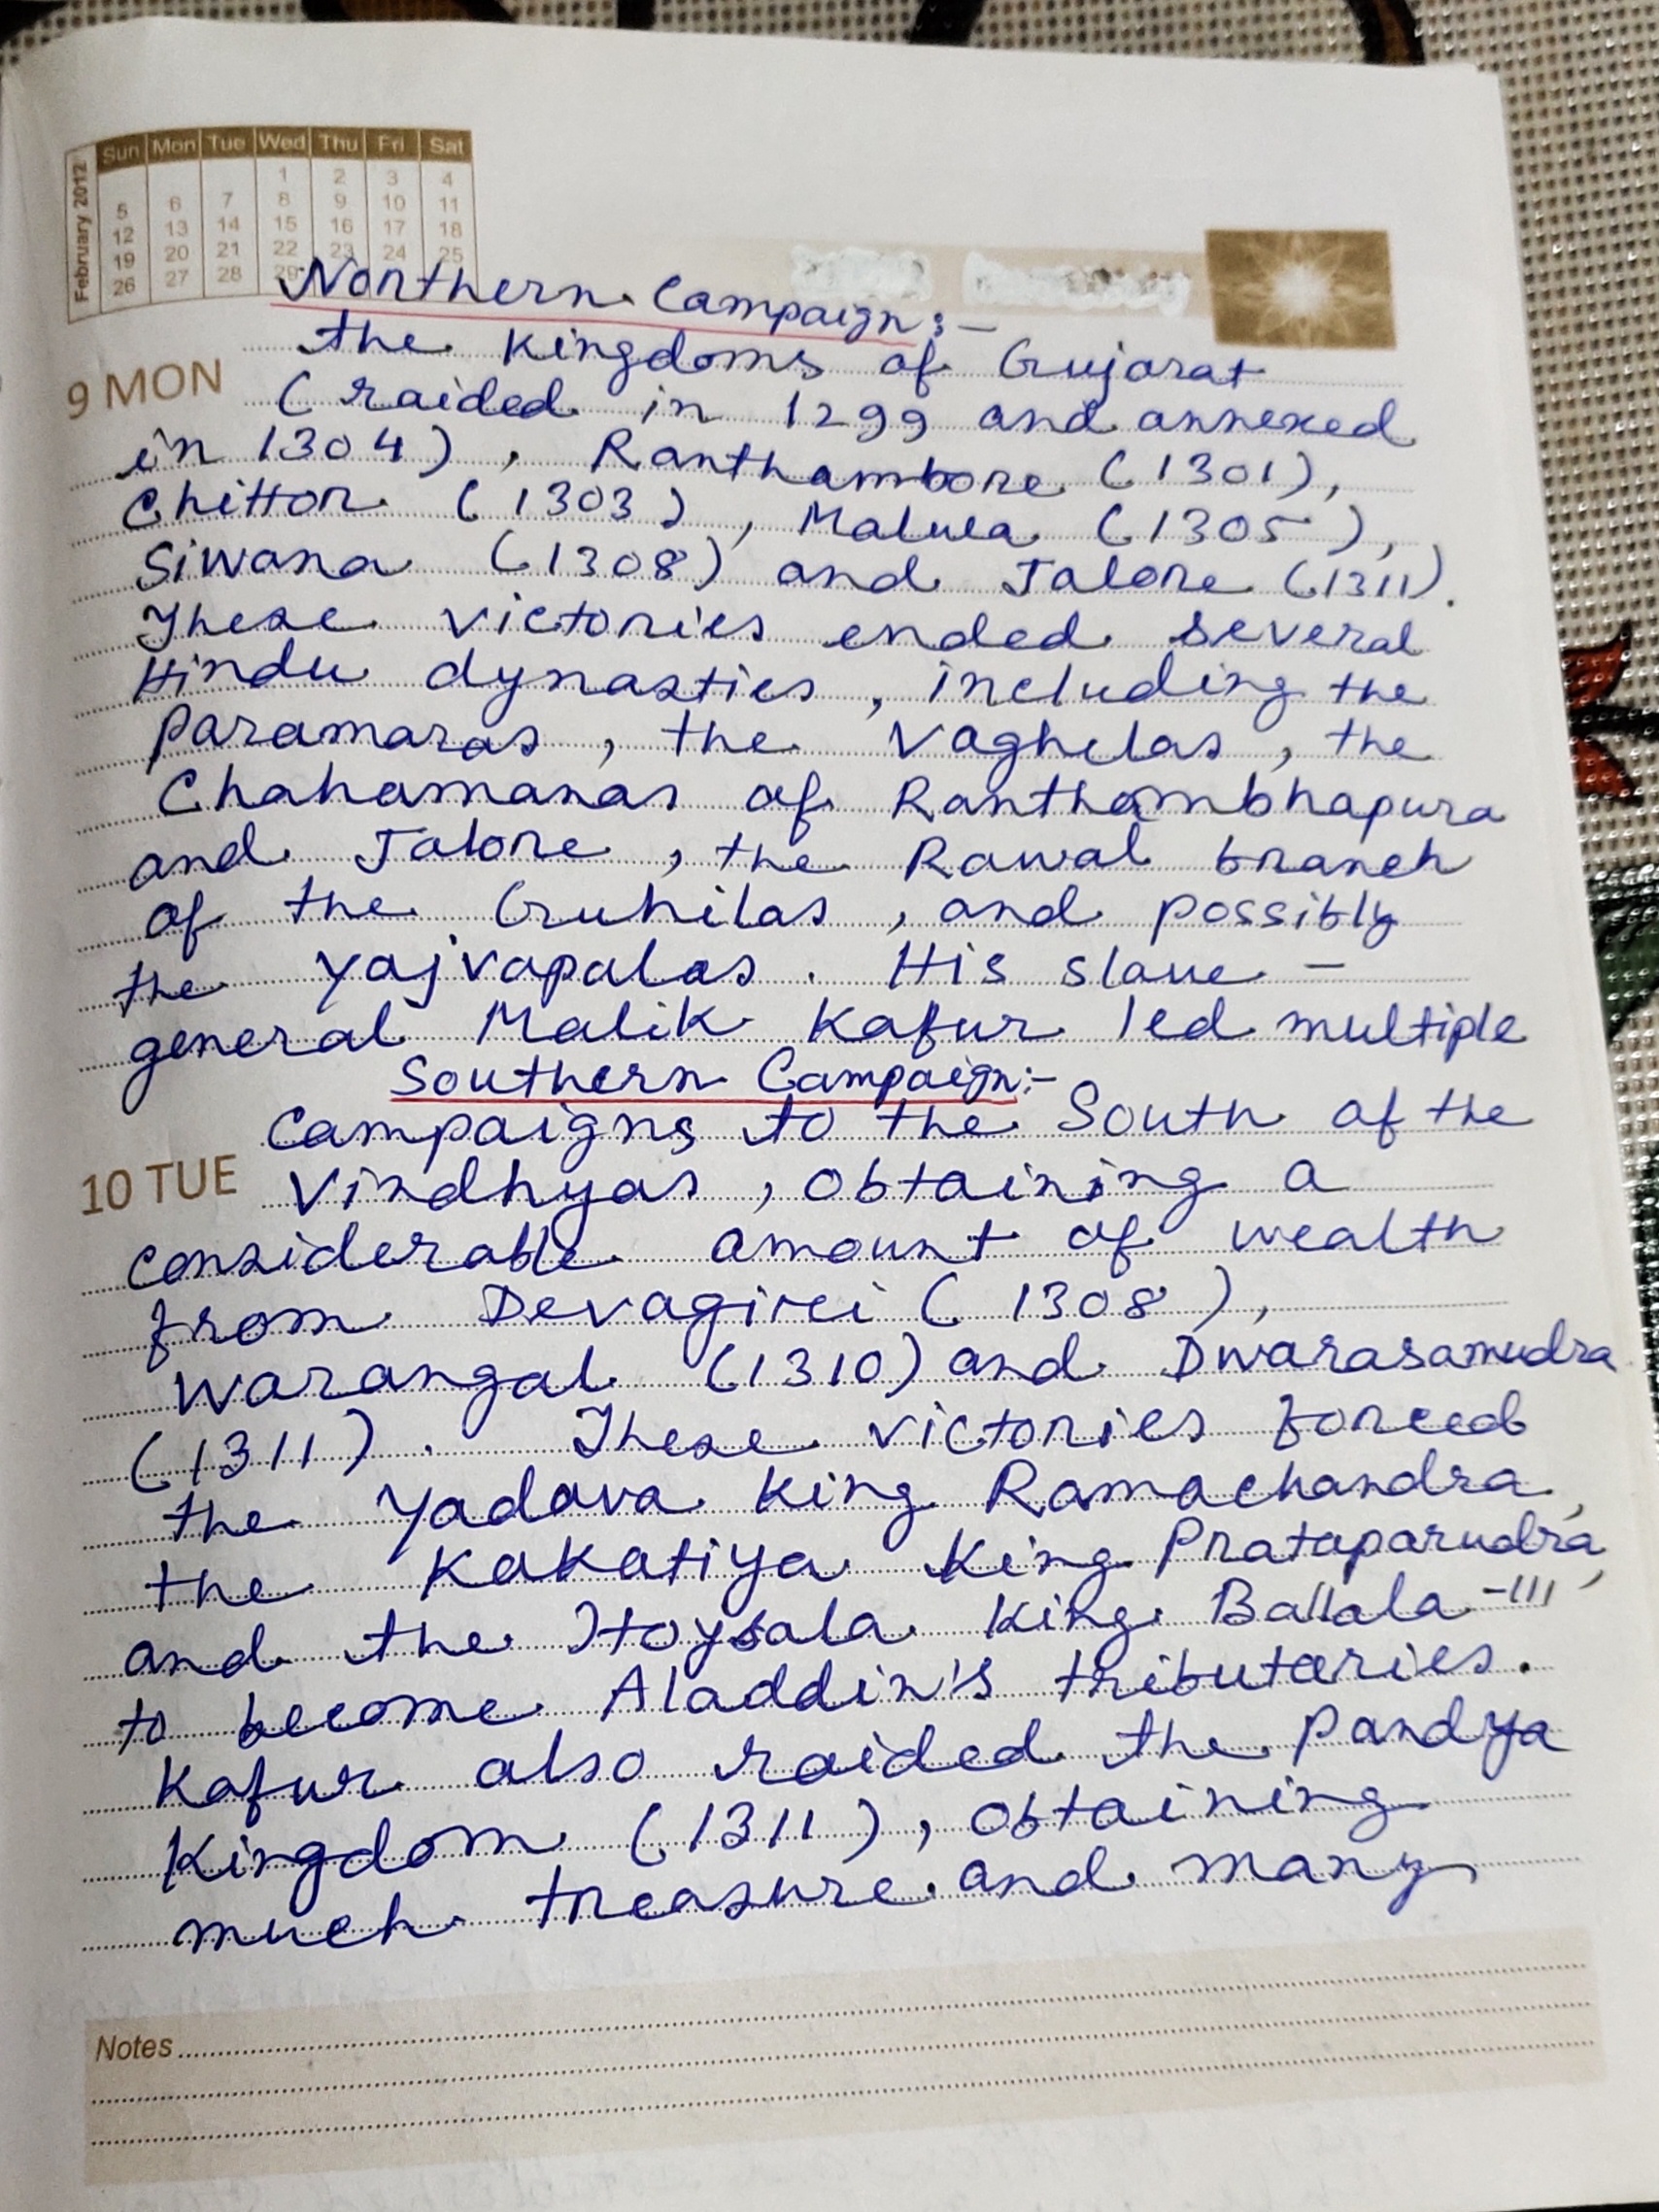 February 2012
Sun Mon Tue Wed Thu Fri Sat
1 2 3 4
5 6 7 8 9 10 11
12 13 14 15 16 17 18
19 20 21 22 23 24 25
26 27 28 29
Northern Campaign:-
the Kingdoms of Gujarat
9 MON
(raided in 1299 and annexed
in 1304), Ranthambore (1301),
Chittor (1303), Malwa (1305),
Siwana (1308) and Jalore (1311).
These victories ended several
Hindu dynasties, including the
Paramaras, the Vaghelas, the
Chahamanas of Ranthambhapura
and Jalore, the Rawal branch
of the Guhilas, and possibly
the Yajvapalas. His slave-
general Malik Kafur led multiple
Southern Campaign:-
campaigns to the South of the
10 TUE
Vindhyas, obtaining a
considerable amount of wealth
from Devagiri (1308),
Warangal (1310) and Dwarasamudra
(1311). These victories forced
the Yadava King Ramachandra,
the Kakatiya King Prataparudra,
and the Hoysala King Ballala-III
to become Aladdin's tributaries.
Kafur also raided the Pandya
Kingdom (1311), obtaining
much treasure and many
Notes